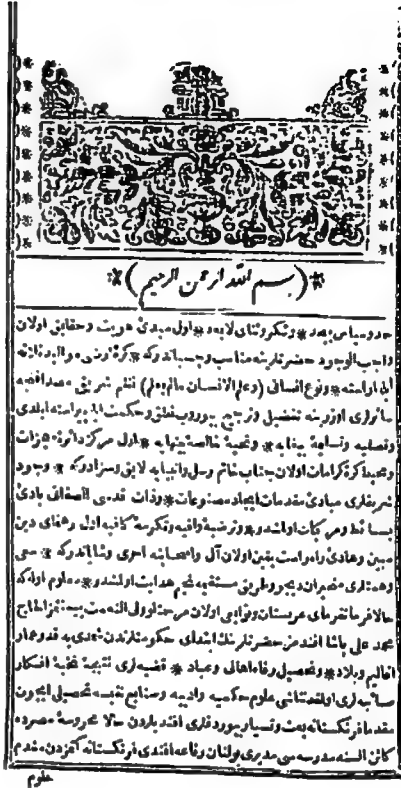 (بسم الله الرحمن الرحيم)
حد وسپاس بیحد * وشكر وثنای لابعد * اول مبدئ هویت وحقایق اولان
واجب الوجود حضرتلرینه مناسب وچسباندركه * كرهٔ ارضی موالید ثلاثه
ایله آراسته * ونوع انسانی (وعلم الانسان مالم یعلم) نظم شریفی مصداقنجه
سائرلری اوزرینه تفضیل وترجیح بیوروب نطق وحكمت ایله پیراسته ایلدی
وتصلیه وتسلیهٔ بیغایه * وتحیهٔ خالصهٔ بینهایه * اول مركز دائرهٔ معجزات
ومحیط كرهٔ كرامات اولان جناب خاتم رسل وانبیایه لایق وسزادركه * وجود
شریفلری مبادئ مقدمات ایجاد مصنوعات * وذات قدسی الصفاتی بادئ
بسائط ومركبات اولمشدر * وترضیهٔ وافیه وتكرمهٔ كافیه اول رهنمای دین
مبین وهادئ راه راست یقین اولان آل واصحابنه احری وشایاندركه * سعی
وهمتلری مضیران دیجور وطریق مستقیمه نجم هدایت اولمشدر * معلوم اوله كه
حالا فرمانفرمای عربستان ونوابی اولان مرحمتلو ولی النعمت بیمنتمز الحاج
محمد علی پاشا افندمز حضرتلرینك ابتدای حكومتلرندن بدء ی به قدر عمار
اقالیم وبلاد * وتحصیل رفاه اهالی وعباد * قضیه لری نتیجهٔ نخبهٔ افكار
صائبه لری اولمغله تقاضای علوم حكمیه وادبیه وصنایع نفیسه تحصیلی ایچون
مقدما فرنكستانه بعث وتسیار بیوردقلری افندیلردن حالا محروسهٔ مصرده
كائن السنه مدرسه سی مدیری بولنان رفاعه افندی فرنكستانه كتمزدن مقدم
علوم